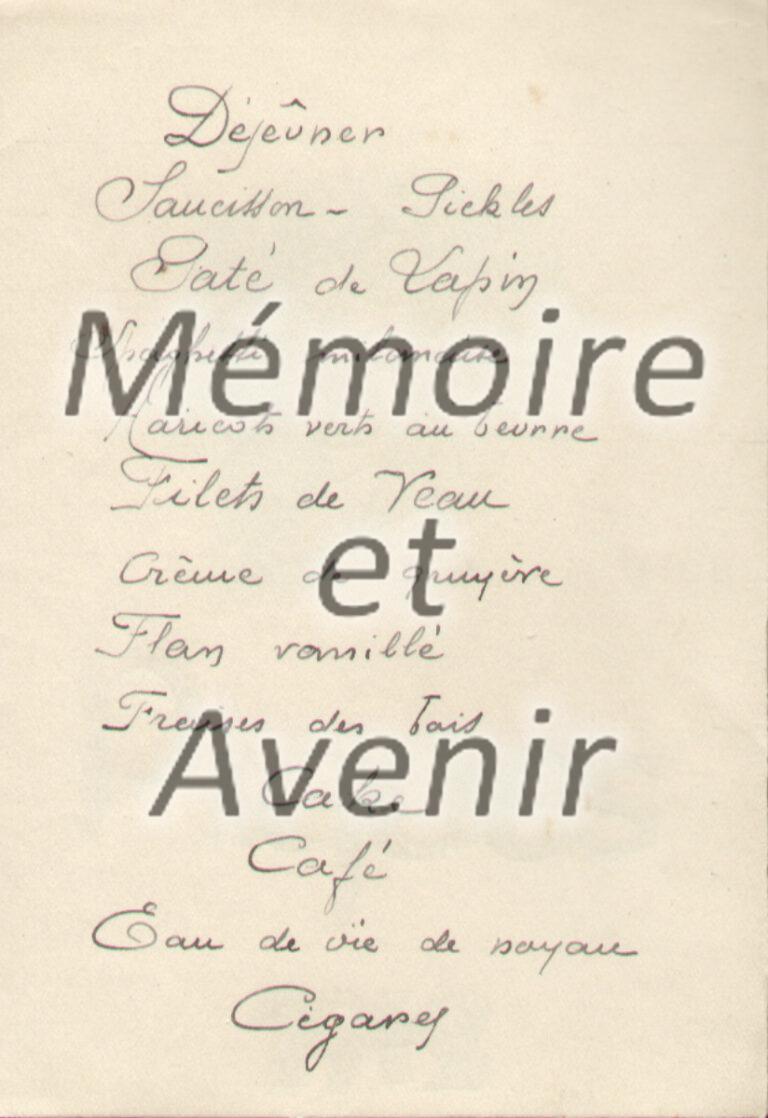 Déjeûner
Saucisson - Pickles
Paté de Lapin
Spaghetti milanaise
Mémoire
Haricots verts au beurre
Filets de Veau
et
Crème de gruyère
Flan vanillé
Fraises des bois
Avenir
Cake
Café
Eau de vie de noyau
Cigares